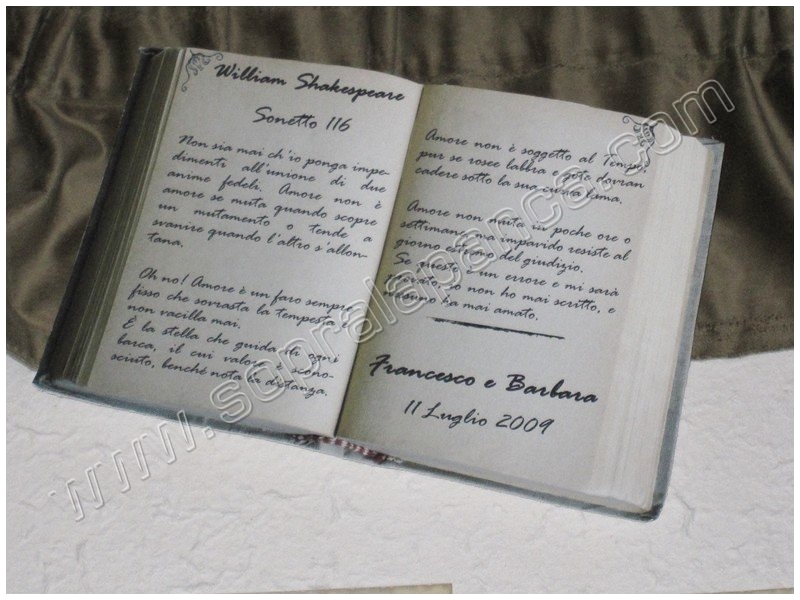 William Shakespeare
Sonetto 116
Non sia mai ch'io ponga impe-
dimenti all'unione di due
anime fedeli. Amore non è
amore se muta quando scopre
un mutamento o tende a
svanire quando l'altro s'allon-
tana.
Oh no! Amore è un faro sempre
fisso che sovrasta la tempesta e
non vacilla mai.
È la stella che guida di ogni
barca, il cui valore è scono-
sciuto, benché nota la distanza.
Amore non è soggetto al Tempo,
pur se rosee labbra e gote dovran
cadere sotto la sua curva lama.
Amore non muta in poche ore o
settimane, ma impavido resiste al
giorno estremo del giudizio.
Se questo è un errore e mi sarà
provato, io non ho mai scritto, e
nessuno ha mai amato.
Francesco e Barbara
11 Luglio 2009
www.sopralapanca.com